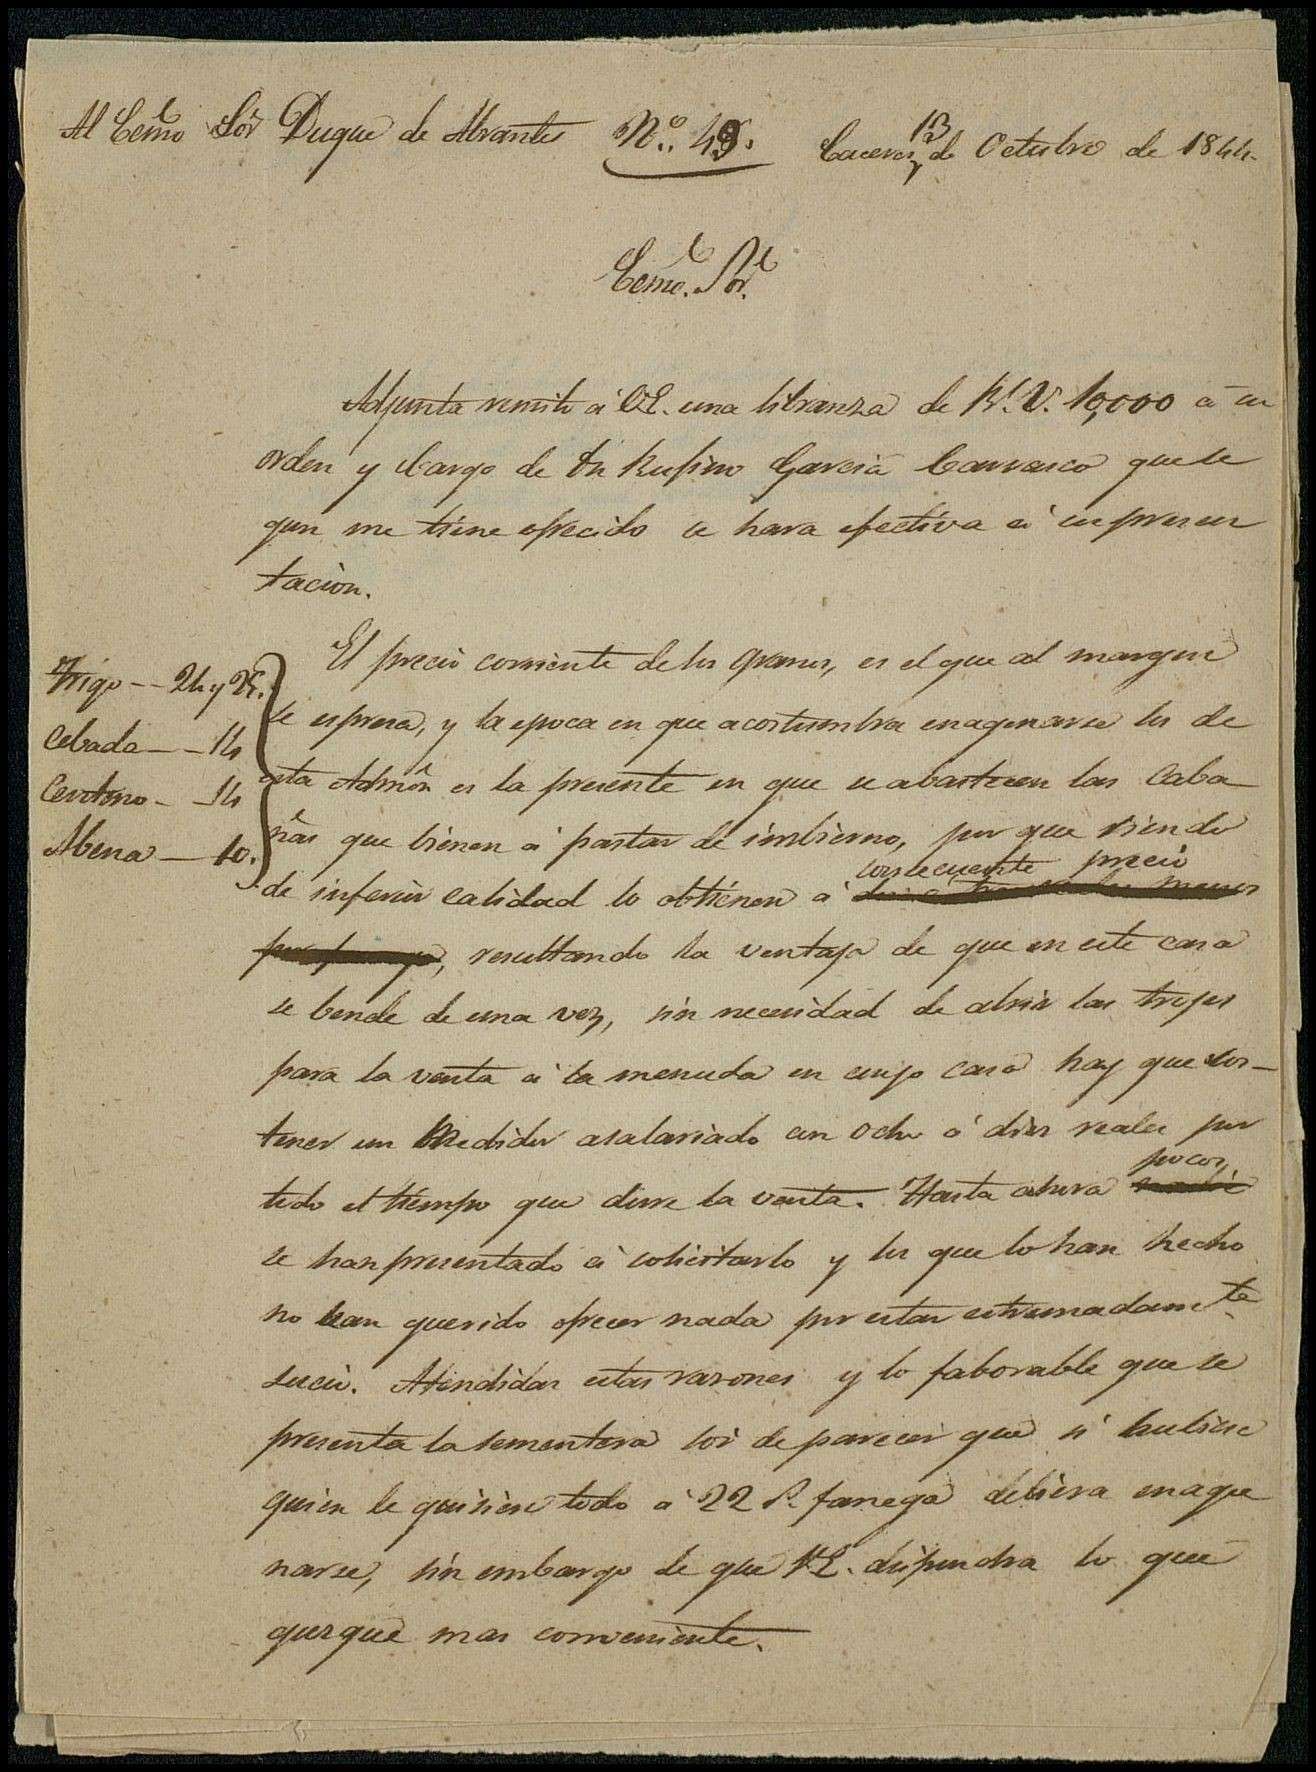 Al Ecmo Sor Duque de Abrantes Nº. 49. Caceres 13 de Octubre de 1844.
Ecmo. Sor.
Adjunta remito á V.E. una libranza de Rs. V. 10,000 á su
orden y cargo de Dn Rufino Garcia Carrasco que se
gun me tiene ofrecido se hara efectiva á su presen
tacion.
El precio corriente de los granos, es el que al margen
se espresa, y la epoca en que acostumbra enagenarse los de
esta Admôn es la presente en que se abastecen las Caba
ñas que bienen á pastar de imbierno, por que siendo
consecuente precio
de inferior calidad lo obtienen á
resultando la ventaja de que en este caso
se bende de una vez, sin necesidad de abrir las trojes
para la venta á la menuda en cuyo caso hay que sos-
tener un Medidor asalariado con ocho ó diez reales por
pocos
todo el tiempo que dure la venta. Hasta ahora
se han presentado á solicitarlo y los que lo han hecho
no han querido ofrecer nada por estar estremadamte
sucio. Atendidas estas razones y lo faborable que se
presenta la sementera soi de parecer que si hubiese
quien le quisiere todo á 22 rs. fanega debiera enage
narse, sin embargo de que V.E. dispondra lo que
juzgue mas conveniente.
Trigo -- 24 y 25.
Cebada -- 14
Centeno - 14
Abena - 10.